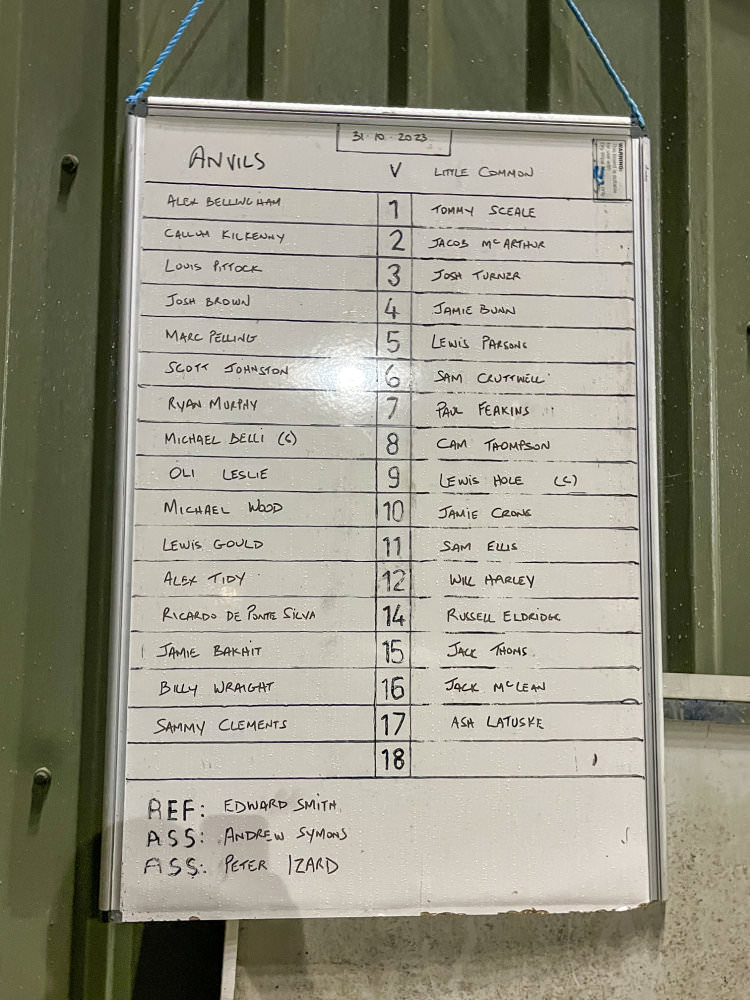 31·10·2023
ANVILS V LITTLE COMMON
ALEX BELLINGHAM 1 TOMMY SCEALE
CALLUM KILKENNY 2 JACOB MCARTHUR
LOUIS PITTOCK 3 JOSH TURNER
JOSH BROWN 4 JAMIE BUNN
MARC PELLING 5 LEWIS PARSONS
SCOTT JOHNSTON 6 SAM CRUTTWELL
RYAN MURPHY 7 PAUL FEAKINS
MICHAEL BELLI (C) 8 CAM THOMPSON
OLI LESLIE 9 LEWIS HOLE (C)
MICHAEL WOOD 10 JAMIE CRONE
LEWIS GOULD 11 SAM ELLIS
ALEX TIDY 12 WILL HARLEY
RICARDO DE PONTE SILVA 14 RUSSELL ELDRIDGE
JAMIE BAKHIT 15 JACK THOMS
BILLY WRAIGHT 16 JACK MCLEAN
SAMMY CLEMENTS 17 ASH LATUSKE
18
REF: EDWARD SMITH
ASS: ANDREW SYMONS
ASS: PETER IZARD
WARNING: